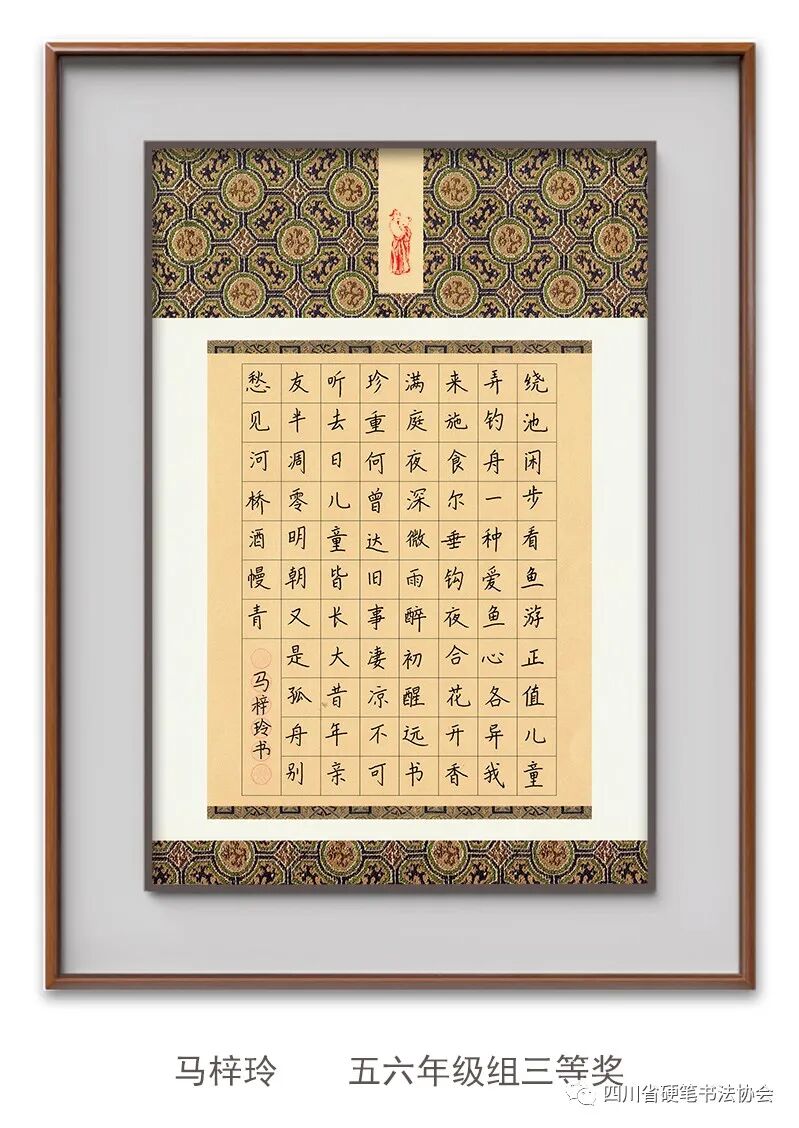 绕池闲步看鱼游正值儿童
弄钓舟一种爱鱼心各异我
来施食尔垂钩夜合花开香
满庭夜深微雨醉初醒远书
珍重何曾达旧事凄凉不可
听去日儿童皆长大昔年亲
友半凋零明朝又是孤舟别
愁见河桥酒幔青
马梓玲书
马梓玲 五六年级组三等奖
四川省硬笔书法协会